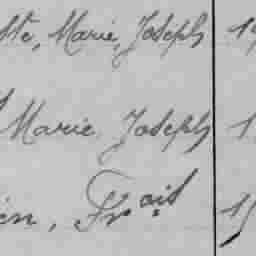 tte, Marie, Joseph 1
Marie Joseph 1
en, Fr.ois 15